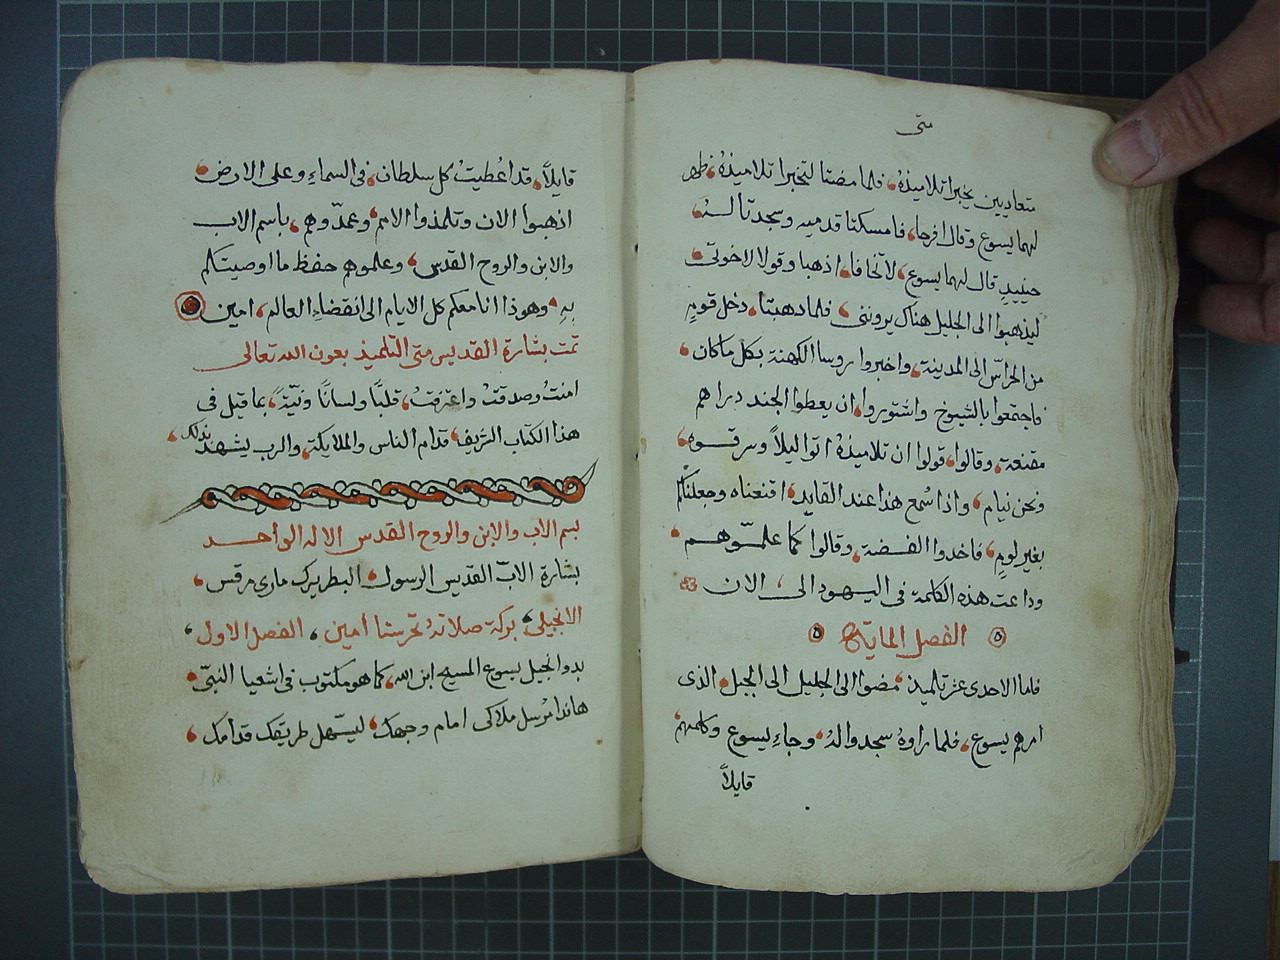 متى
متعاديين يخبرا تلاميذهُ، فلما مضتا لتخبرا تلاميذهُ، ظهر
لهما يسوع وقال افرحا، فامسكتا قدميه وسجدتا لهُ،
حينيدٍ قال لهما يسوع، لا تخافا، اذهبا وقولا لاخوتي،
ليذهبوا الى الجليل هناك يرونني، فلما ذهبتا، دخل قومٍ
من الحرّاس الى المدينة، واخبروا روسا الكهنة بكل ماكان،
فاجتمعوا بالشيوخ واشتوروا، ان يعطوا الجند دراهم
مقنعة، وقالوا، قولوا ان تلاميذهُ اتوا ليلاً وسرقوه،
ونحن نيام، واذا سُمع هذا عند القايد، اقنعناه وجعلناكم
بغير لومٍ، فاخدوا الفضة، وقالوا كما علمّوهم،
وداعت هذه الكلمة في اليهود الى، الان
الفصل الماية
فاما الاحدى عشر تلميذ، مضوا الى الجليل الى الجبل الذى
امرهم يسوع، فلما راوهُ سجدوا لهُ، وجاءِ يسوع وكلمهم،
قايلاً
قايلاً، قد اعُطيتُ كل سلطان، في السماءِ وعلى الارض،
اذهبوا الان وتلمذوا الامم، وعمدّوهم، باسم الاب
والابن والروح القدس، وعلموهم حفظ ما اوصيتكم
بهِ، وهوذا انا معكم كل الايام الى انقضاءِ العالم، امين
تمت بشارة القديس متى التلميذ بعون الله تعالى
امنتُ وصدقتُ واعترفتُ، قلبًا ولسانًا ونيّةً، بما قيل في
هذا الكتاب الشريف، قدام الناس والملايكة، والرب يشهد بذلك،
بسم الاب والابن والروح القدس الاله الواحد
بشارة الابّ القديس الرسول، البطريرك مارى مرقس،
الانجيلى، بركة صلاتهُ تحرسنا امين، الفصل الاول،
بدو انجيل يسوع المسيح ابن الله، كما هو مكتوب في اشعيا النبيّ،
هانذا مُرسل ملاكى امام وجهك، ليسّهل طريقك قدامك،